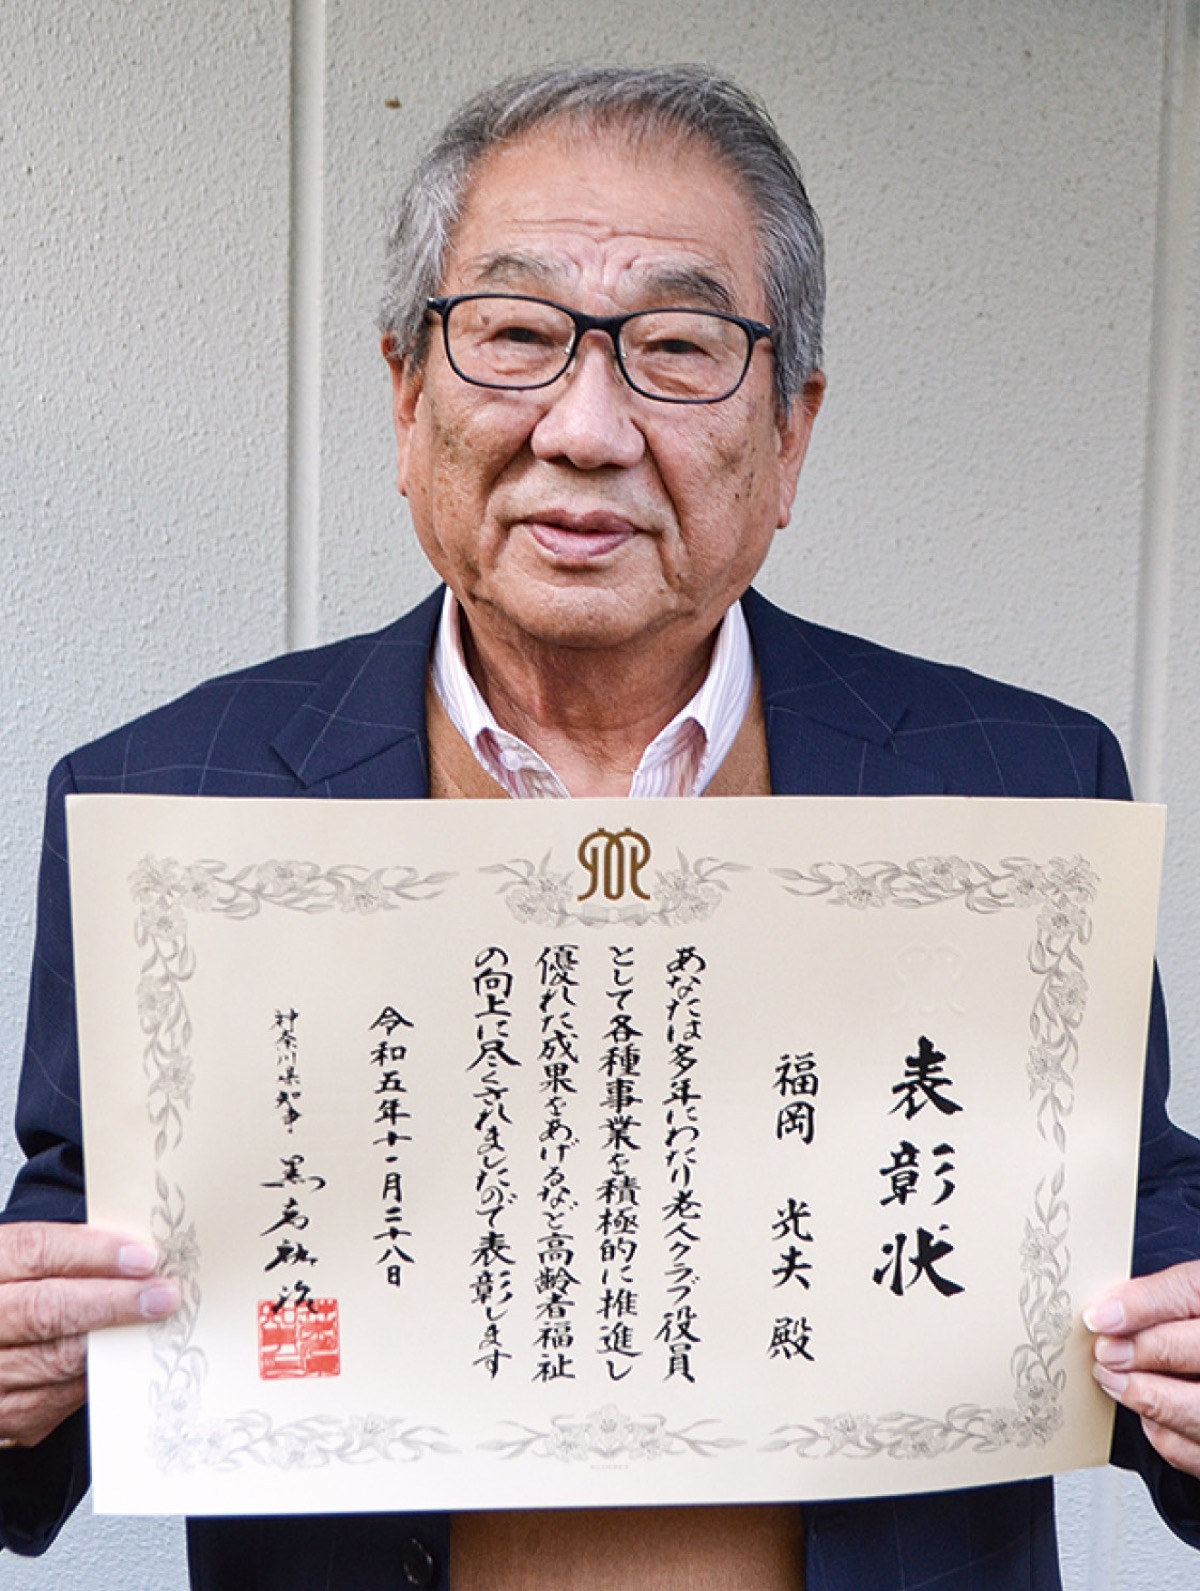 表彰状
福岡 光夫 殿
あなたは多年にわたり老人クラブ役員
として各種事業を積極的に推進し
優れた成果をあげるなど高齢者福祉
の向上に尽くされましたので表彰します
令和五年十一月二十八日
神奈川県知事 黒岩祐治